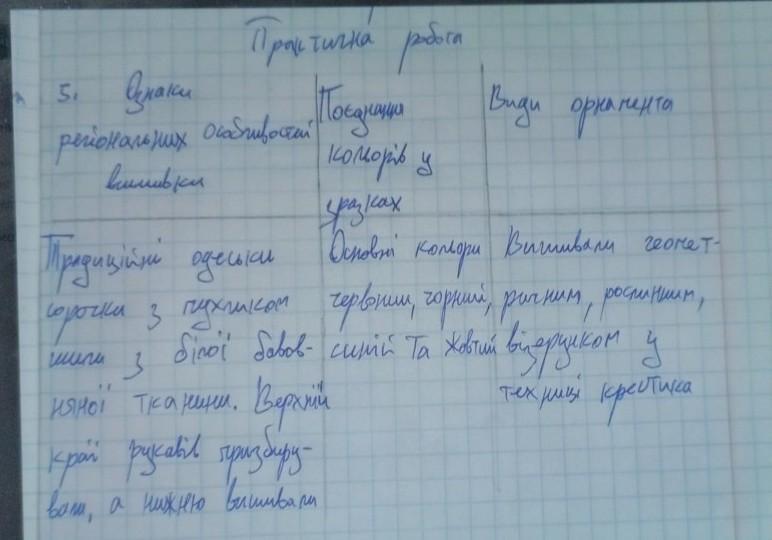 Практична робота
5. Ознаки
регіональних особливостей
вишивки
Поєднання
кольорів у
зразках
Види орнамента
Традиційні одеськи
сорочки з пухликом
шили з білої бавов-
няної тканини. Верхній
край рукавів призбиру-
вали, а нижню вишивали
Основні кольори
червоний, чорний,
синій та жовтий
Вишивали геомет-
ричним, рослинним,
візерунком у
техниці крестика